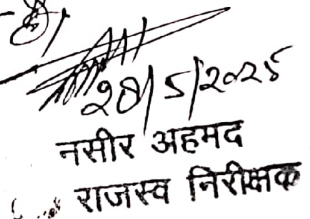 है/
28/5/2025
नसीर अहमद
राजस्व निरीक्षक